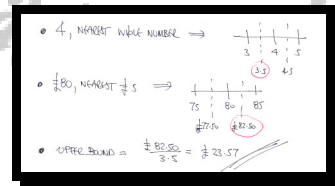 • 4, NEAREST WHOLE NUMBER ⇒
3 4 5
3.5 4.5
• £80, NEAREST £5 ⇒
75 80 85
£77.50 £82.50
• UPPER BOUND = £82.50 / 3.5 = £23.57